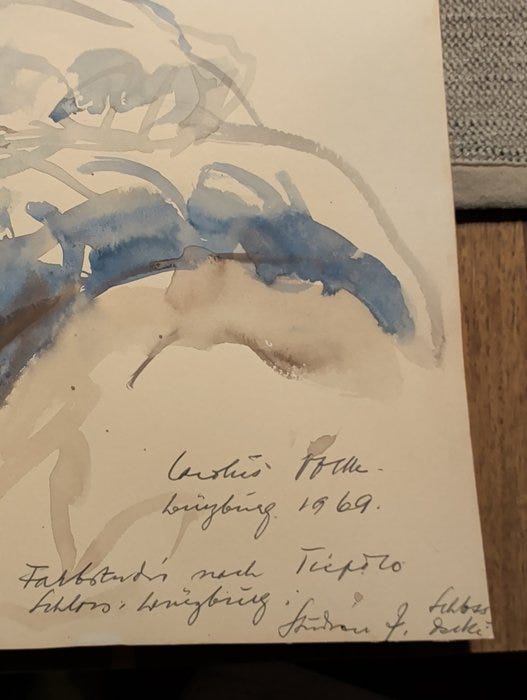 Carolus
Würzburg 1969.
Farbstudie nach Tiepolo
Schloss, Würzburg.
Studien f. Schloss